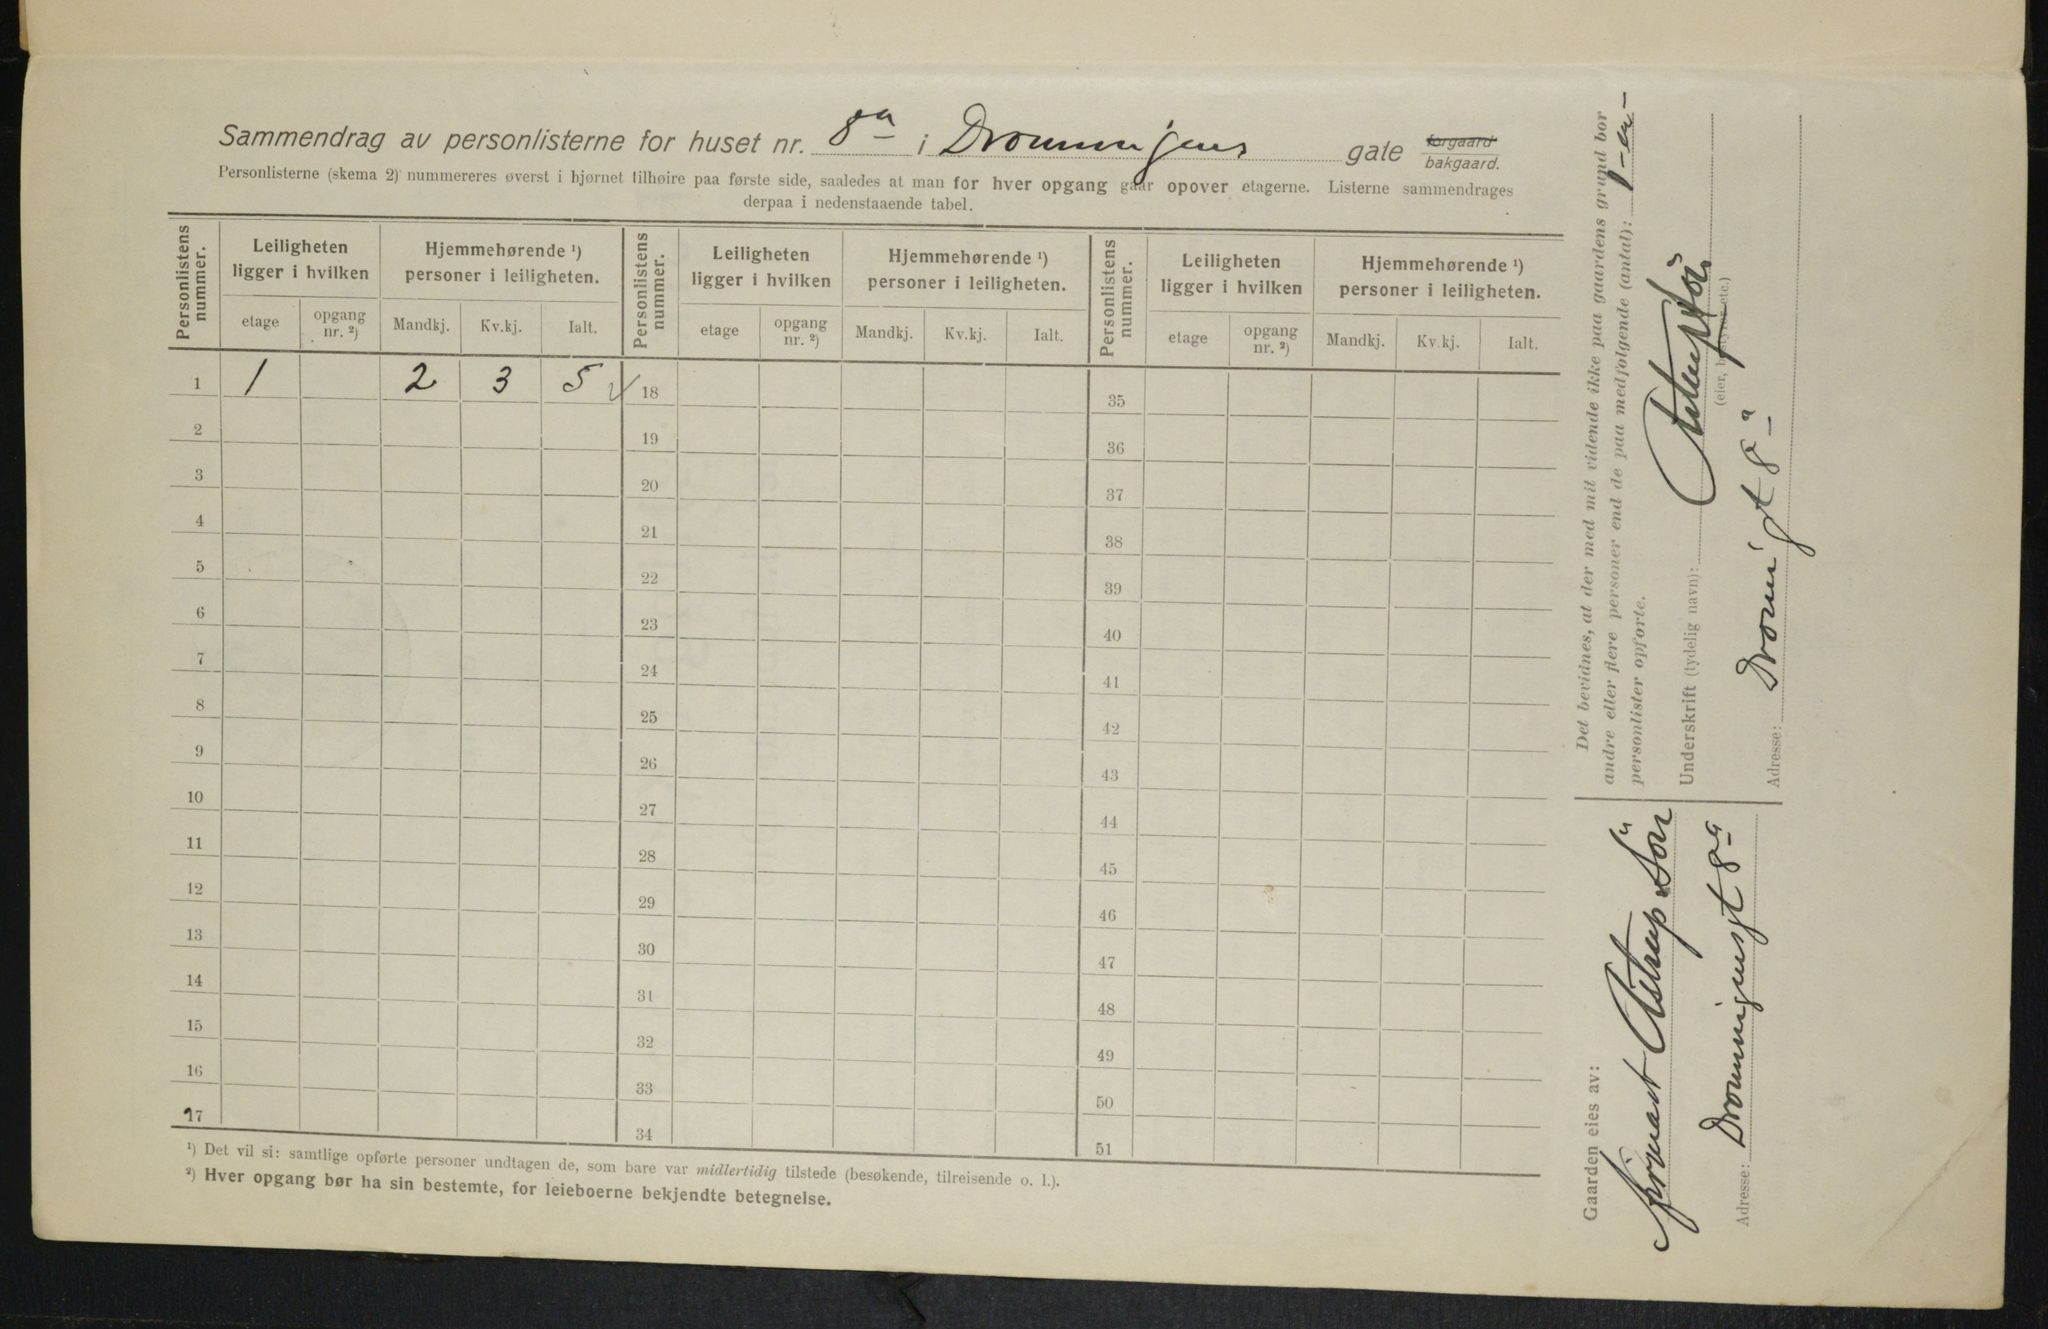 Sammendrag av personlisterne for huset nr. 8a i Dronningens gate forgaard bakgaard.
Personlisterne (skema 2) nummereres øverst i hjørnet tilhøire paa første side, saaledes at man for hver opgang gaar opover etagerne. Listerne sammendrages
derpaa i nedenstaaende tabel.
Personlistens nummer. Leiligheten ligger i hvilken Hjemmehørende ¹) personer i leiligheten. Personlistens nummer. Leiligheten ligger i hvilken Hjemmehørende ¹) personer i leiligheten. Personlistens nummer. Leiligheten ligger i hvilken Hjemmehørende ¹) personer i leiligheten.
etage opgang nr. ²) Mandkj. Kv.kj. Ialt. etage opgang nr. ²) Mandkj. Kv.kj. Ialt. etage opgang nr. ²) Mandkj. Kv.kj. Ialt.
1 1 2 3 5 ✓ 18 35
2 19 36
3 20 37
4 21 38
5 22 39
6 23 40
7 24 41
8 25 42
9 26 43
10 27 44
11 28 45
12 29 46
13 30 47
14 31 48
15 32 49
16 33 50
17 34 51
¹) Det vil si: samtlige opførte personer undtagen de, som bare var midlertidig tilstede (besøkende, tilreisende o. l.).
²) Hver opgang bør ha sin bestemte, for leieboerne bekjendte betegnelse.
Det bevidnes, at der med mit vidende ikke paa gaardens grund bor
andre eller flere personer end de paa medfølgende (antal): 1-en-
personlister opførte.
Underskrift (tydelig navn): Astrup
(eier, bestyrer etc.)
Adresse: Dronnigt 8a
Gaarden eies av:
Astrup & Søn
Adresse: Dronningensgt 8a